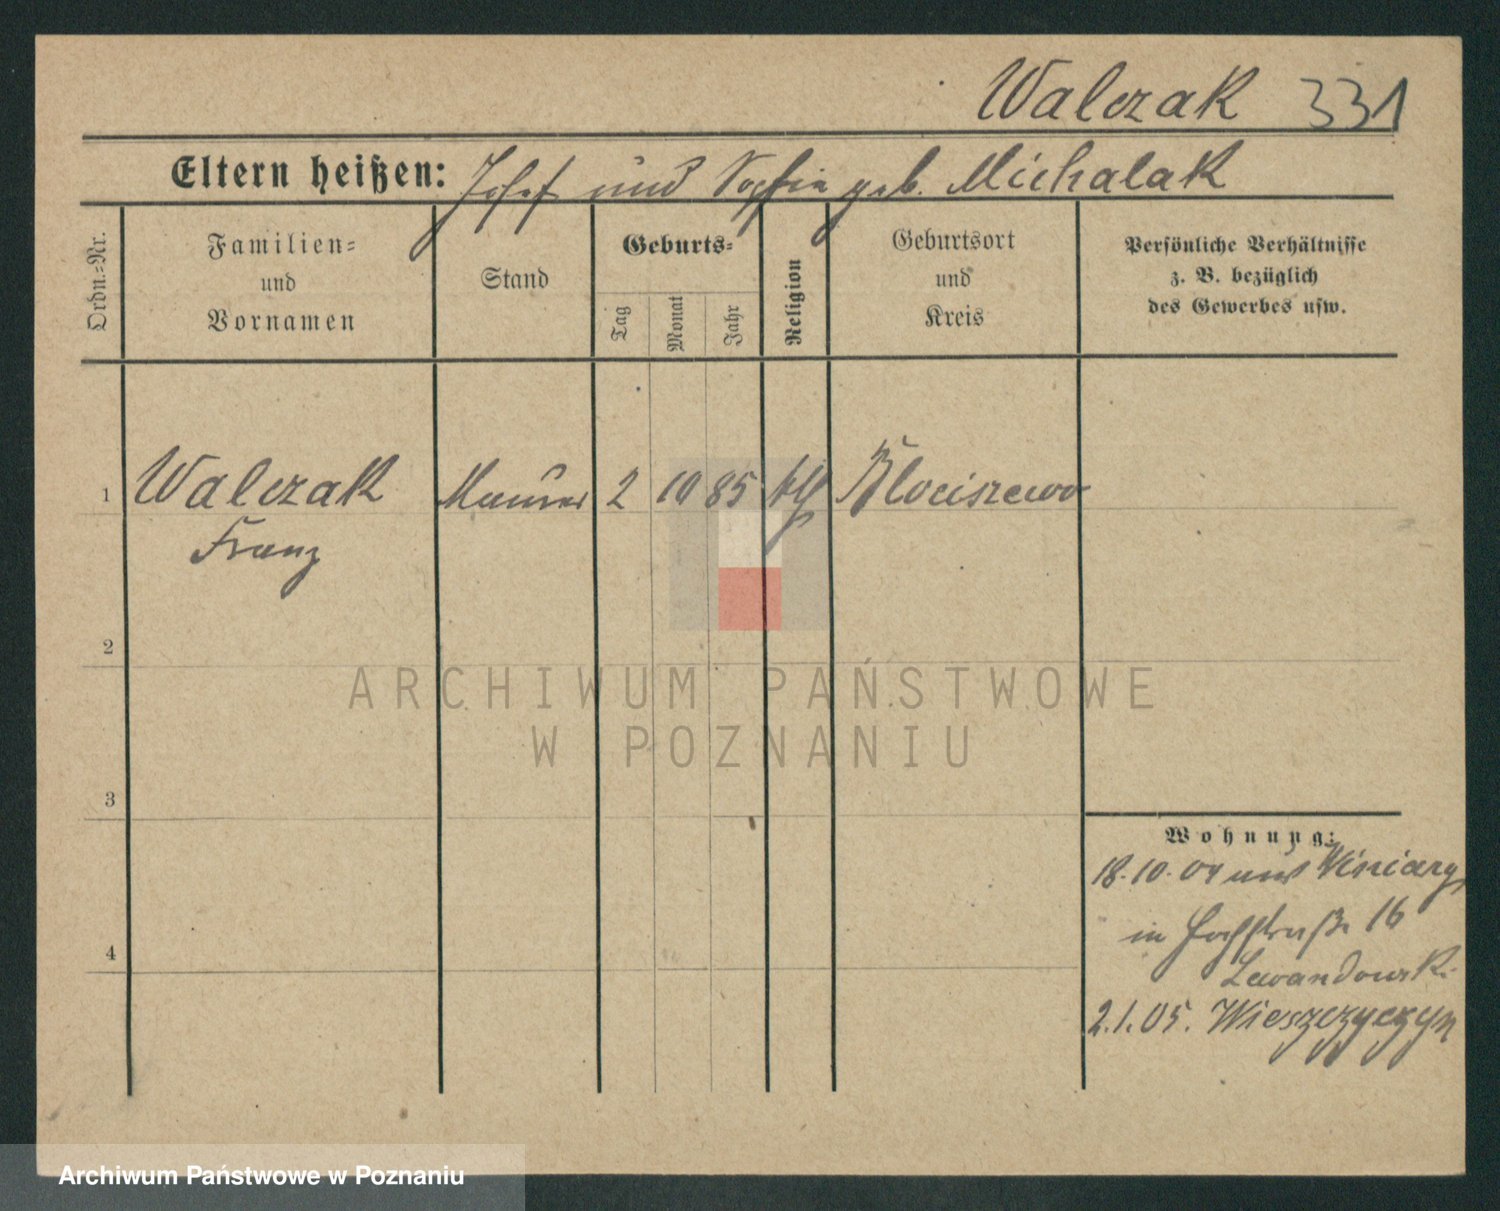 Walczak 331
Eltern heißen: Josef und Sophie geb. Michalak
Ordn.=Nr.
Familien=
und
Vornamen
Stand
Geburts=
Tag
Monat
Jahr
Religion
Geburtsort
und
Kreis
Persönliche Verhältnisse
z. B. bezüglich
des Gewerbes usw.
1 Walczak Maurer 2 10 85 kth Wlociszewo
Franz
2
3
4
Wohnung:
18.10.04 aus Winiary
in Hochstraße 16
Lewandowski
2.1.05. Wieszczyczyn
ARCHIWUM PAŃSTWOWE
W POZNANIU
Archiwum Państwowe w Poznaniu